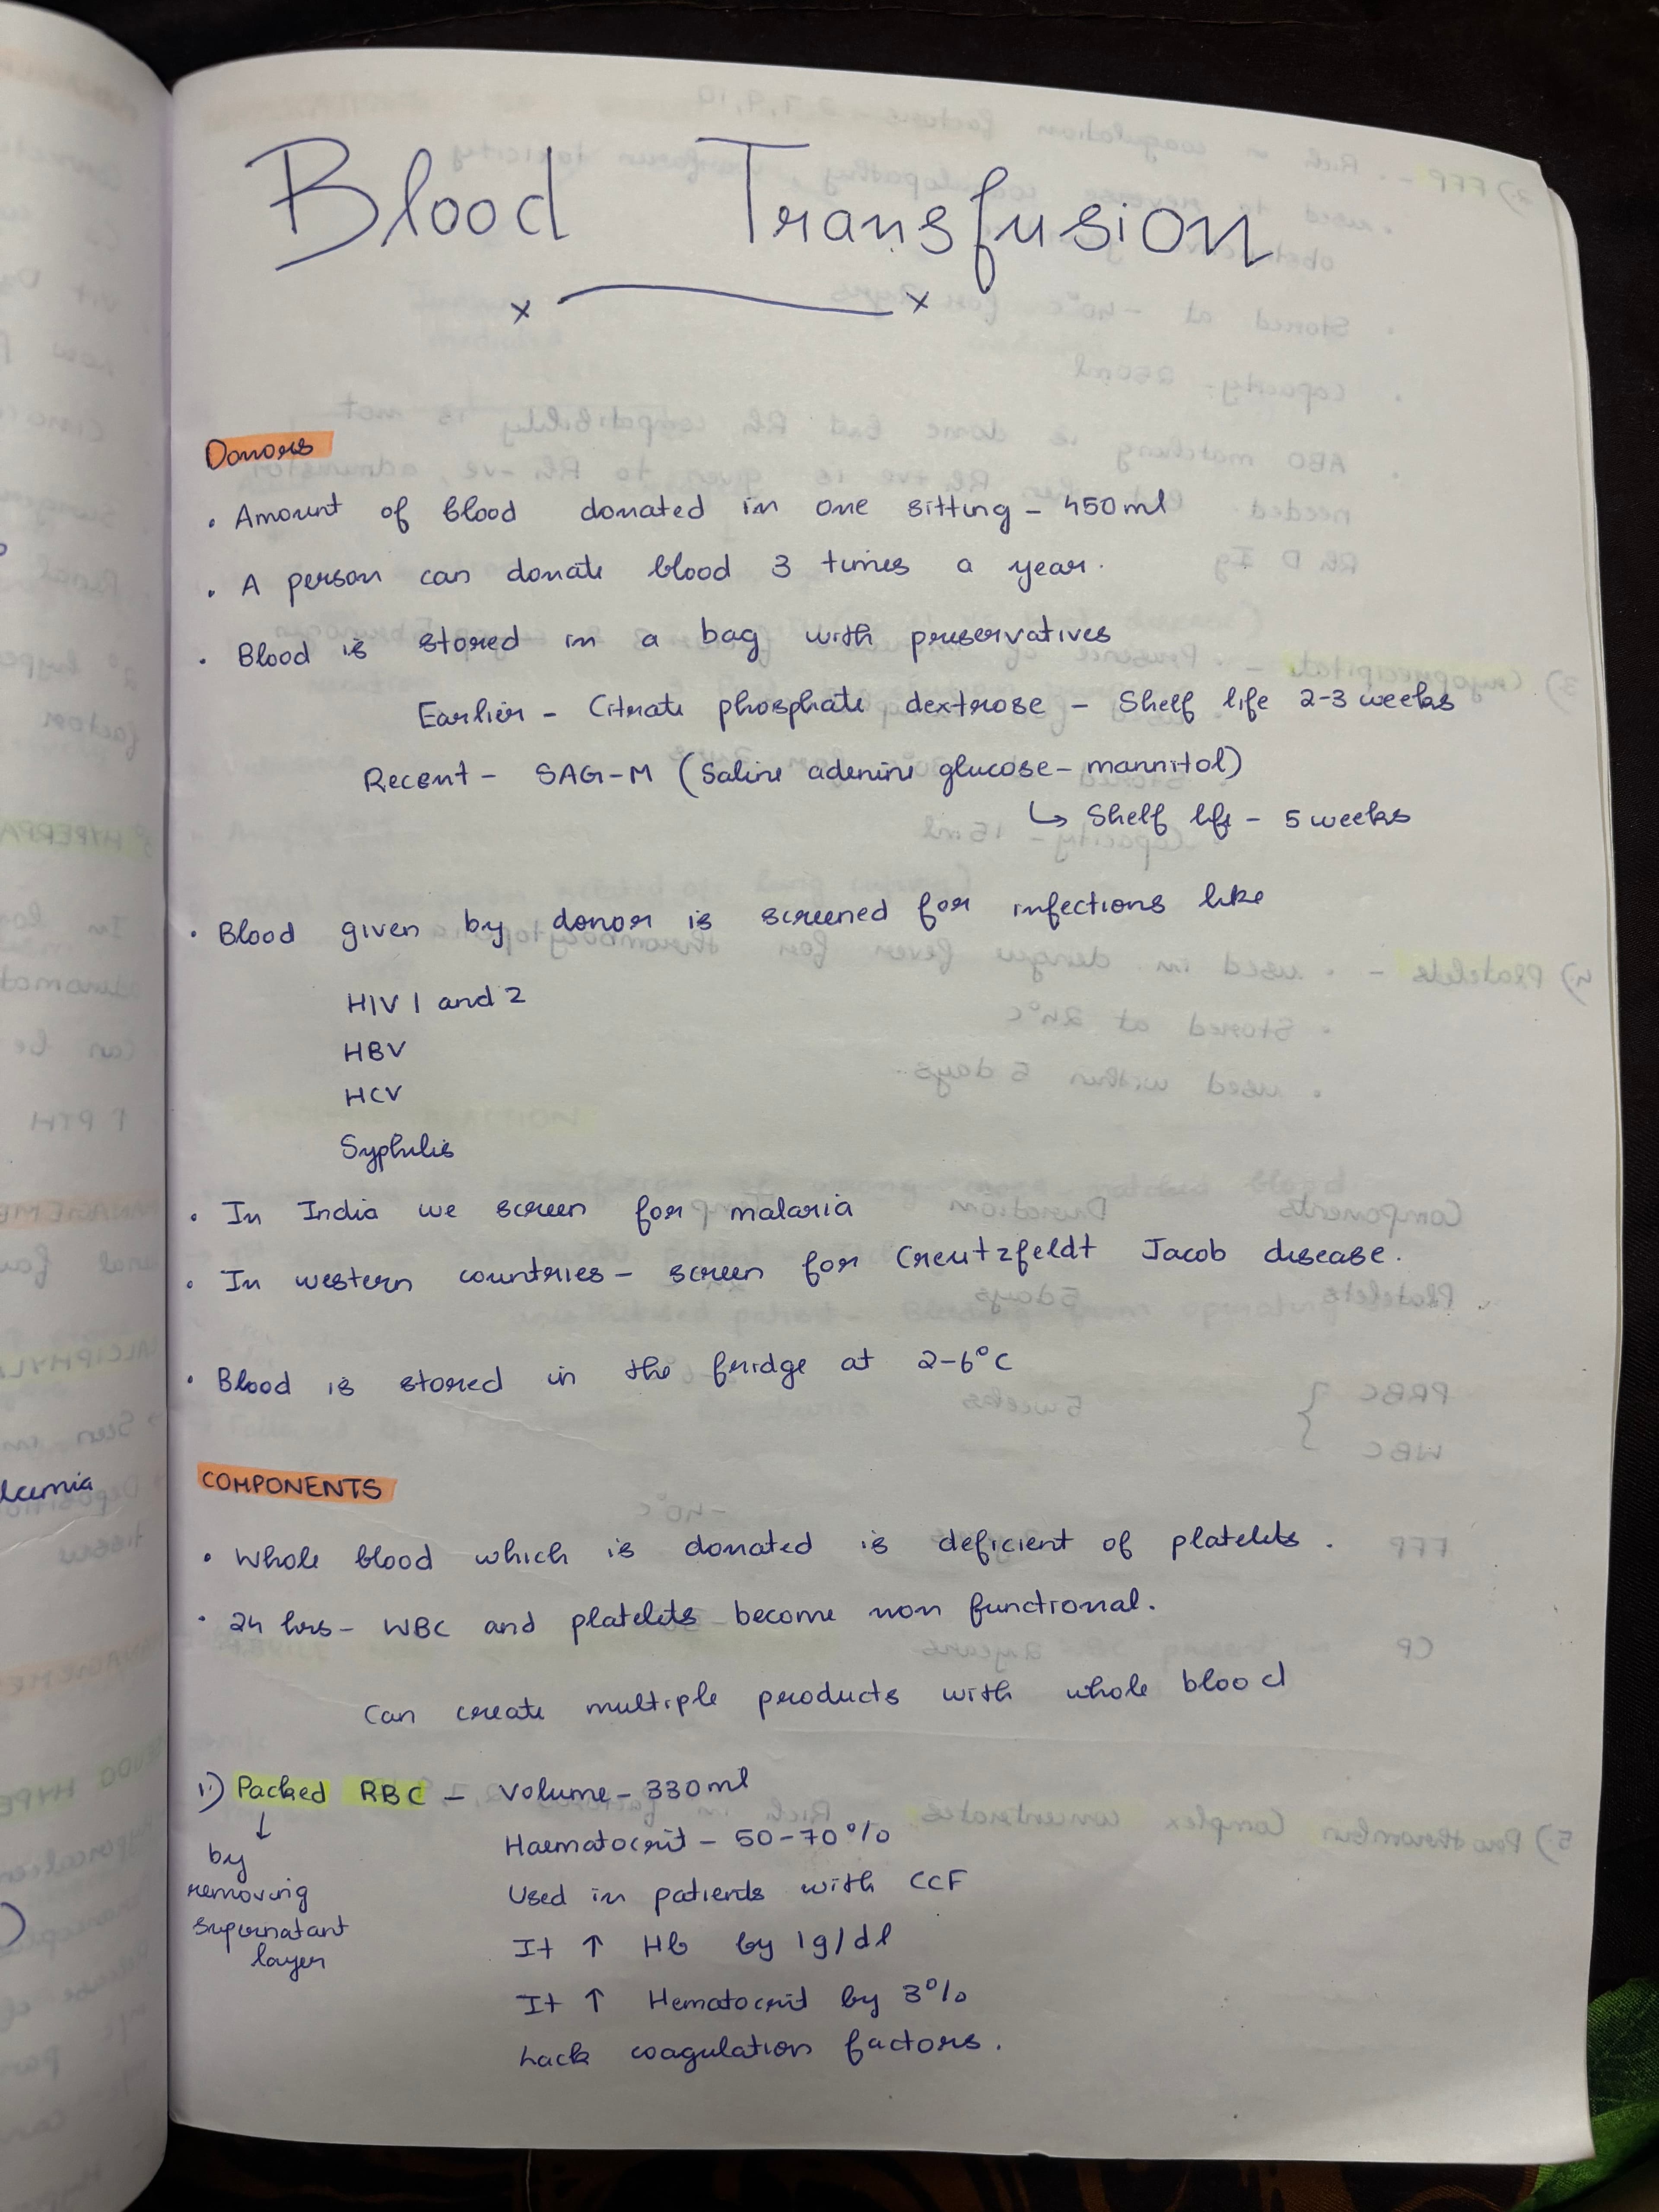 Blood Transfusion
x x
Donors
• Amount of blood donated in one sitting - 450ml
• A person can donate blood 3 times a year.
• Blood is stored in a bag with preservatives
Earlier - Citrate phosphate dextrose - Shelf life 2-3 weeks
Recent - SAG-M (Saline adenine glucose - mannitol)
↳ Shelf life - 5 weeks
• Blood given by donor is screened for infections like
HIV 1 and 2
HBV
HCV
Syphilis
• In India we screen for malaria
• In western countries - screen for Creutzfeldt Jacob disease.
• Blood is stored in the fridge at 2-6°C
COMPONENTS
• Whole blood which is donated is deficient of platelets.
• 24 hrs - WBC and platelets become non functional.
Can create multiple products with whole blood
1) Packed RBC - Volume - 330ml
↓
by
removing
supernatant
layer
Haematocrit - 50-70%
Used in patients with CCF
It ↑ Hb by 1g/dl
It ↑ Hematocrit by 3%
Lack coagulation factors.